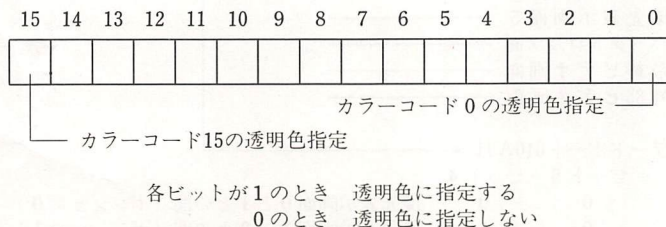 15 14 13 12 11 10 9 8 7 6 5 4 3 2 1 0
カラーコード 0 の透明色指定
カラーコード15の透明色指定
各ビットが 1 のとき 透明色に指定する
0 のとき 透明色に指定しない